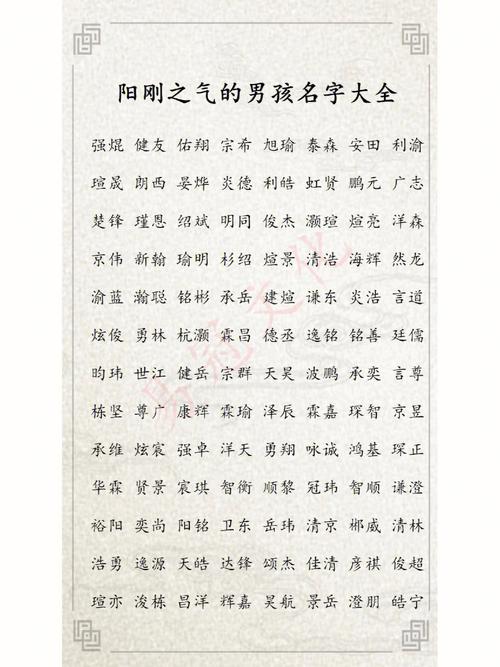 阳刚之气的男孩名字大全
强焜 健友 佑翔 宗希 旭瑜 泰森 安田 利渝
瑄晟 朗西 晏烨 炎德 利皓 虹贤 鹏元 广志
楚锋 瑾恩 绍斌 明同 俊杰 灏瑄 煊亮 洋森
京伟 新翰 瑜明 杉绍 煊景 清浩 海辉 然龙
渝蓝 瀚聪 铭彬 承岳 建煊 谦东 炎浩 言道
炫俊 勇林 杭灏 霖昌 德丞 逸铭 铭善 廷儒
昀玮 世江 健岳 宗群 天昊 波鹏 承奕 言尊
栋坚 尊广 康辉 霖瑜 泽辰 霖嘉 琛智 京昱
承维 炫宸 强卓 洋天 勇翔 咏诚 鸿基 琛正
华霖 贤景 宸琪 智衡 顺黎 冠玮 智顺 谦澄
裕阳 奕尚 阳铭 卫东 岳玮 清京 郴威 清林
浩勇 逸源 天皓 达锋 颂杰 佳清 彦祺 俊超
瑄亦 浚栋 昌洋 辉嘉 昊航 景岳 澄朋 皓宁
易冠文化